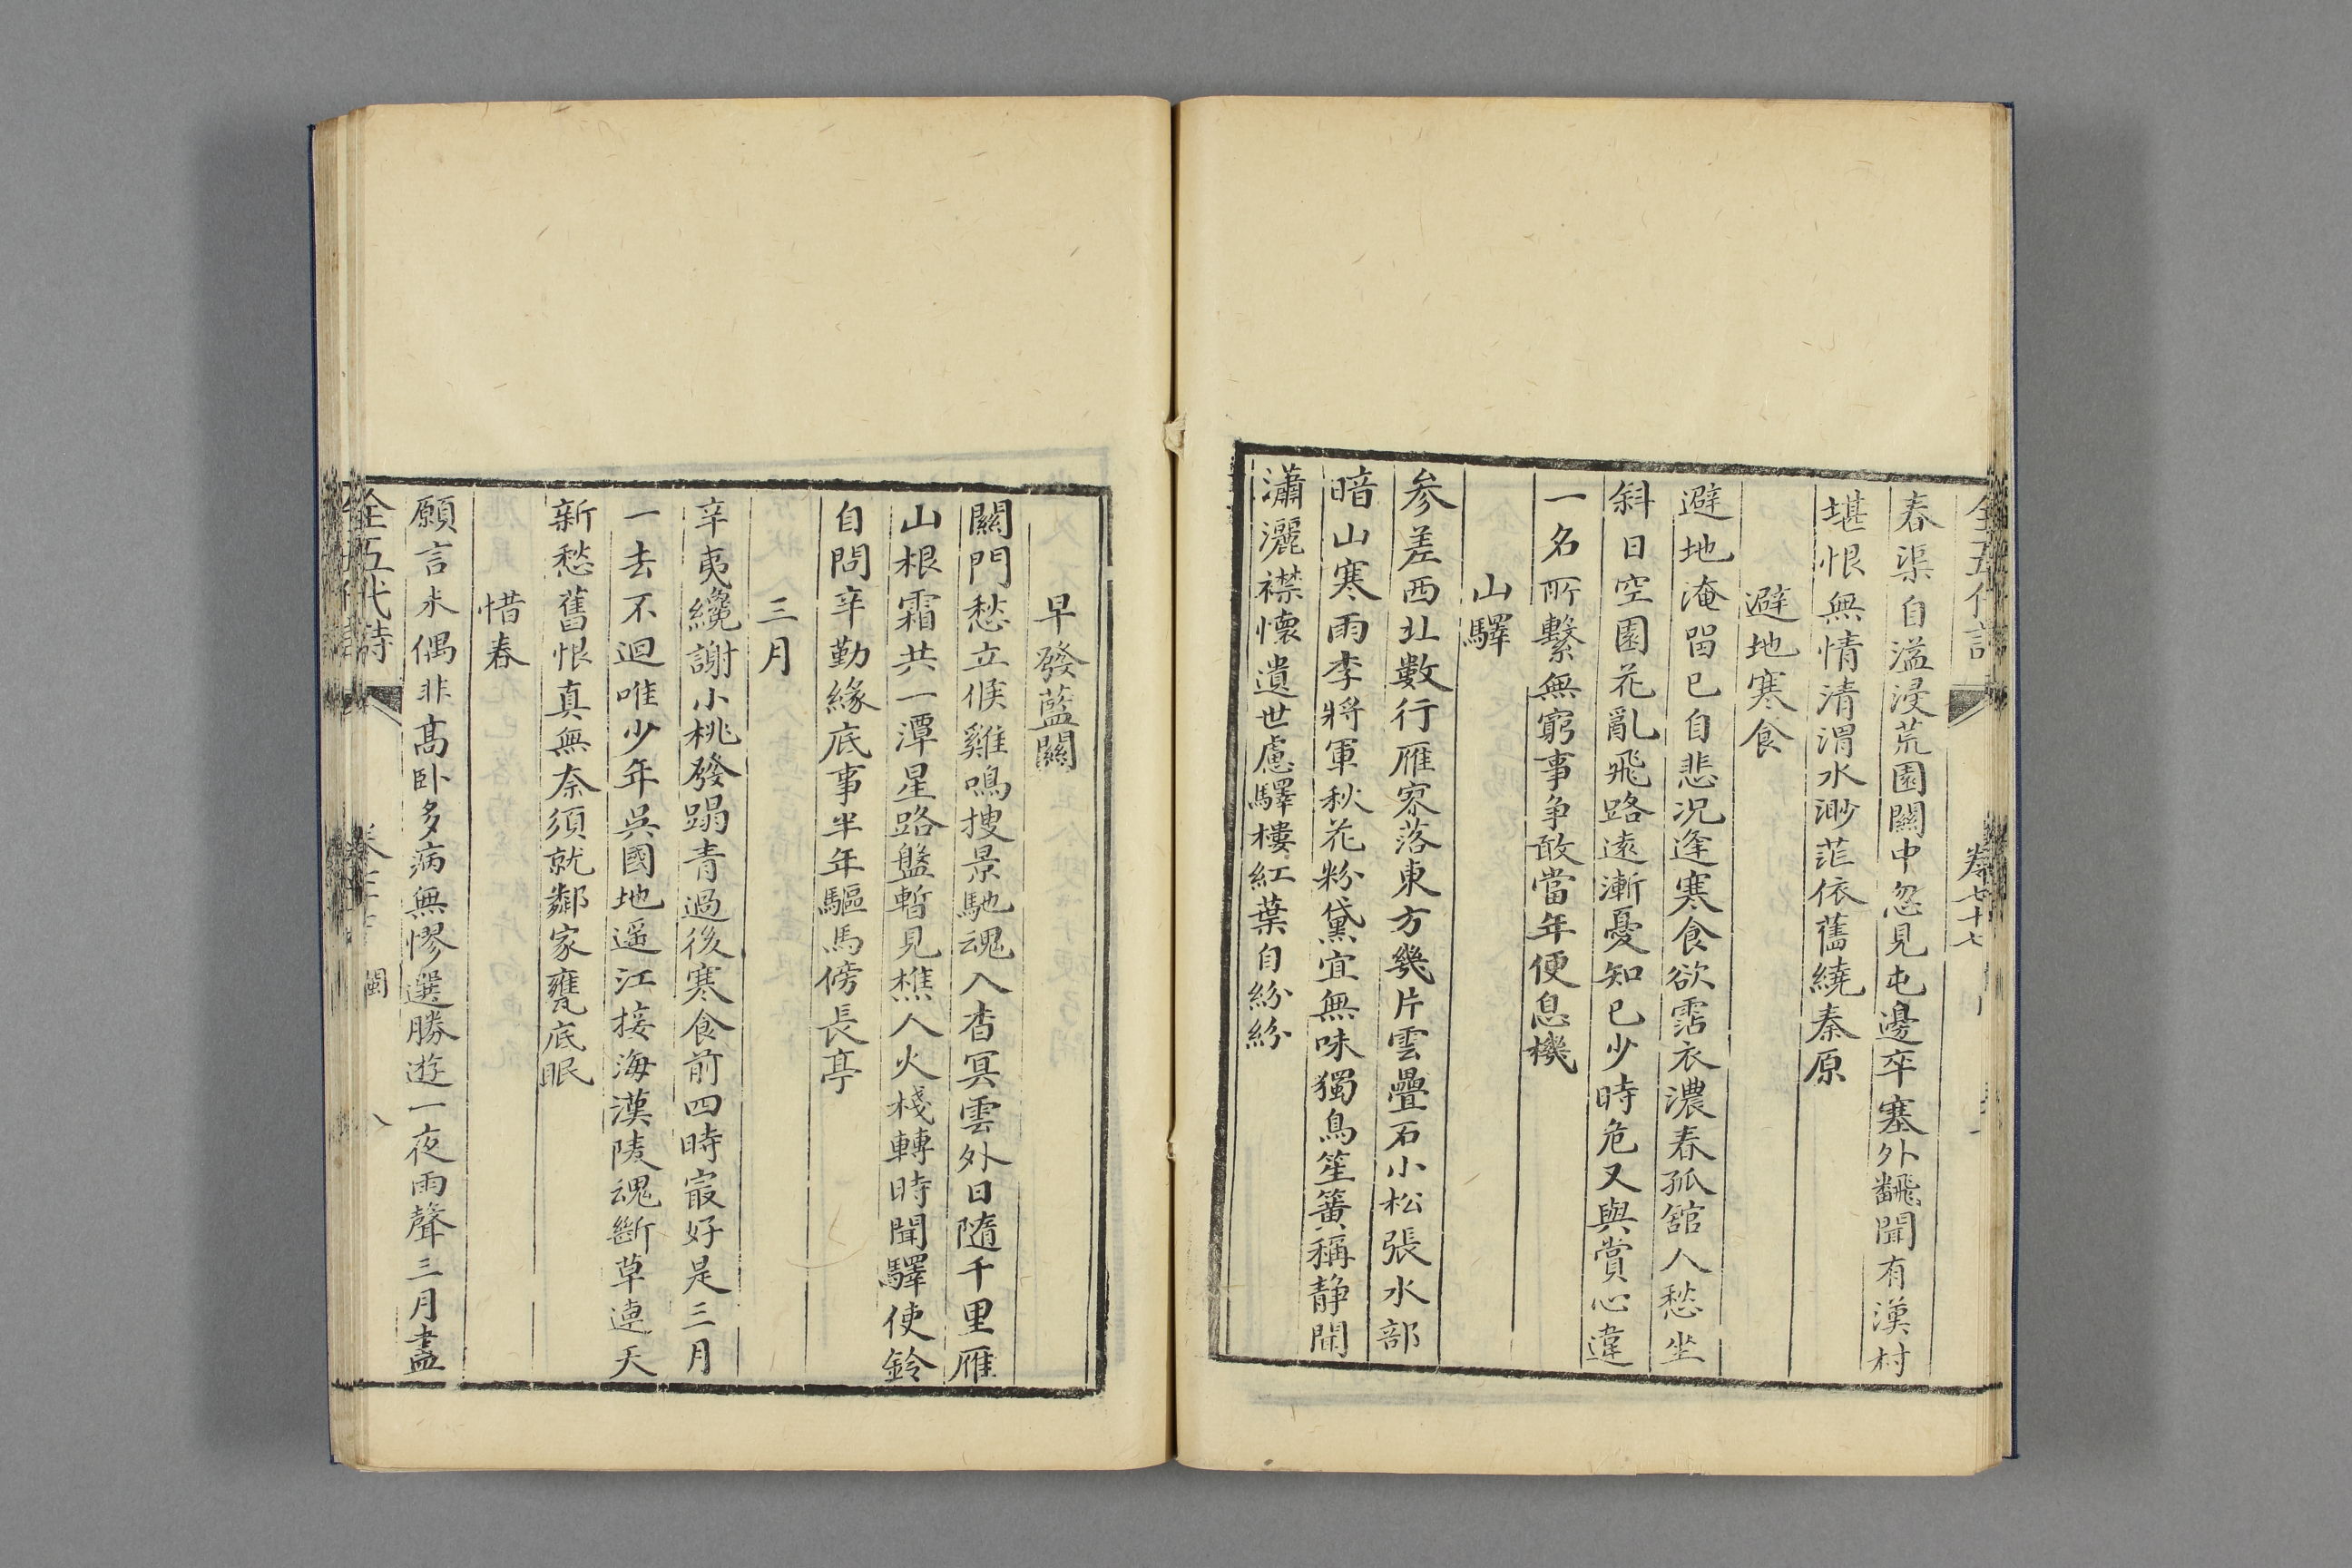 全五代詩
卷七十七
春渠自溢浸荒園關中忽見屯邊卒塞外飜聞有漢村
堪恨無情清渭水渺茫依舊繞秦原
避地寒食
避地淹畱已自悲况逢寒食欲霑衣濃春孤舘人愁坐
斜日空園花亂飛路遠漸憂知已少時危又與賞心違
一名所繫無窮事爭敢當年便息機
山驛
参差西北數行雁寥落東方幾片雲疊石小松張水部
暗山寒雨李將軍秋花粉黛宜無味獨鳥笙簧稱静聞
瀟灑襟懷遺世慮驛樓紅葉自紛紛
早發藍關
關門愁立候雞鳴搜景馳魂入杳冥雲外日隨千里雁
山根霜共一潭星路盤暫見樵人火棧轉時聞驛使鈴
自問辛勤緣底事半年驅馬傍長亭
三月
辛夷纔謝小桃發蹋青過後寒食前四時寂好是三月
一去不迴唯少年吳國地遥江接海漢陵魂斷草連天
新愁舊恨真無奈須就鄰家甕底眠
惜春
願言未偶非髙卧多病無憀選勝遊一夜雨聲三月盡
全五代詩
閩
八